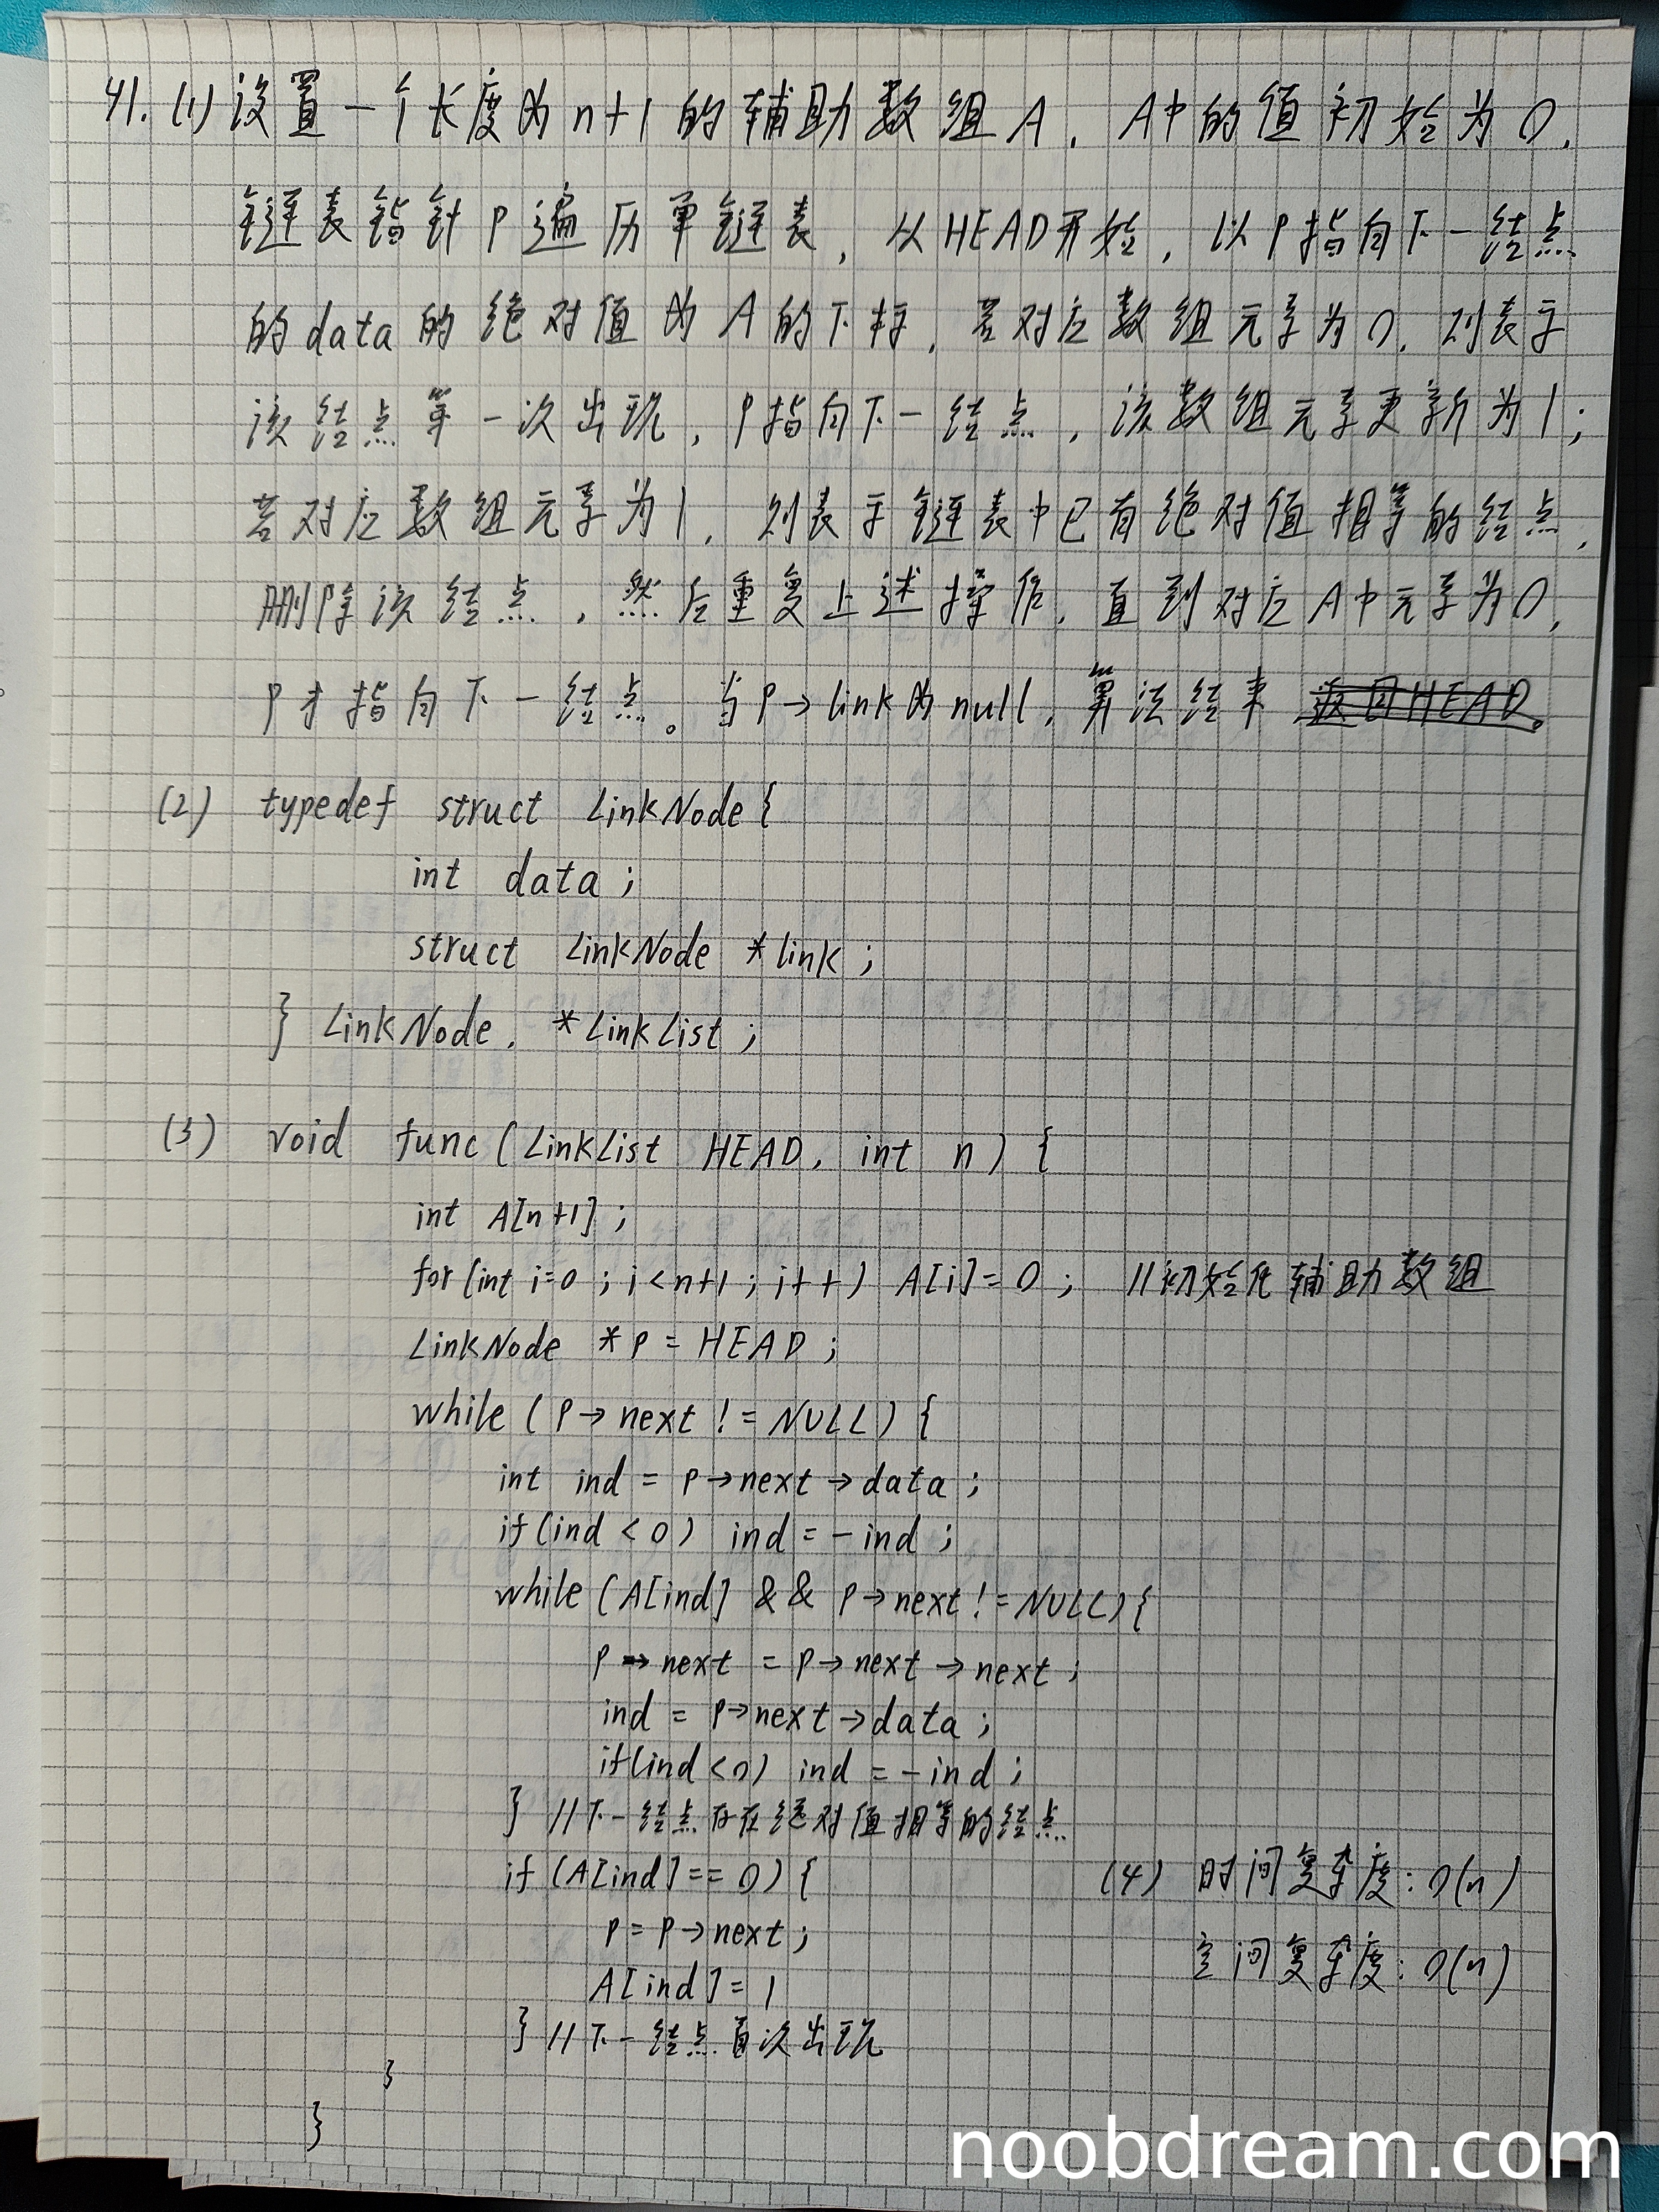 41. (1) 设置一个长度为n+1的辅助数组A, A中的值初始为0,
链表指针P遍历单链表, 从HEAD开始, 以P指向下一结点
的data的绝对值为A的下标, 若对应数组元素为0, 则表示
该结点第一次出现, P指向下一结点, 该数组元素更新为1;
若对应数组元素为1, 则表示链表中已有绝对值相等的结点,
删除该结点, 然后重复上述操作, 直到对应A中元素为0,
P才指向下一结点。当P→link为null, 算法结束 返回HEAD。
(2) typedef struct LinkNode{
int data;
struct LinkNode *link;
} LinkNode, *LinkList;
(3) void func(LinkList HEAD, int n){
int A[n+1];
for(int i=0; i<n+1; i++) A[i]=0; //初始化辅助数组
LinkNode *P = HEAD;
while (P→next != NULL) {
int ind = P→next→data;
if(ind<0) ind = -ind;
while (A[ind] && P→next != NULL){
P→next = P→next→next;
ind = P→next→data;
if(ind<0) ind = -ind;
} //下一结点存在绝对值相等的结点
if (A[ind]==0){
P = P→next;
A[ind]=1
} //下一结点首次出现
}
}
(4) 时间复杂度: O(n)
空间复杂度: O(n)
noobdream.com